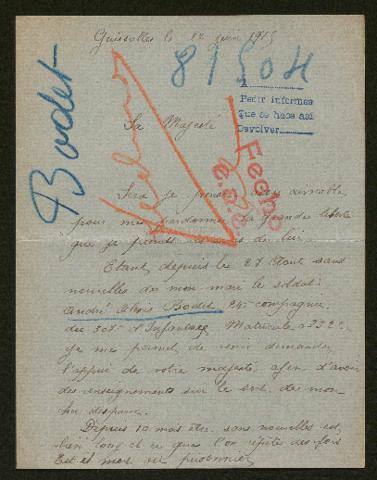 le 17 juin 1915
Bodet
81504
A
Pedir informes
Que se hace asi
Devolver
Sa Majesté
Fecho
Sire je pense aimable
pour me pardonner la grande liberté
que je prends
Etant depuis le 27 Aout sans
nouvelles de mon mari le soldat
André Bodet 24e compagnie
du 307e d'Infanterie Matricule
je me permet de venir demander
l'appui de votre majesté afin d'avoir
des renseignements sur le sort de mon
cher disparu.
Depuis 10 mois être sans nouvelles est
bien long et ce que l'on répète des fois
Est-il mort ou prisonnier